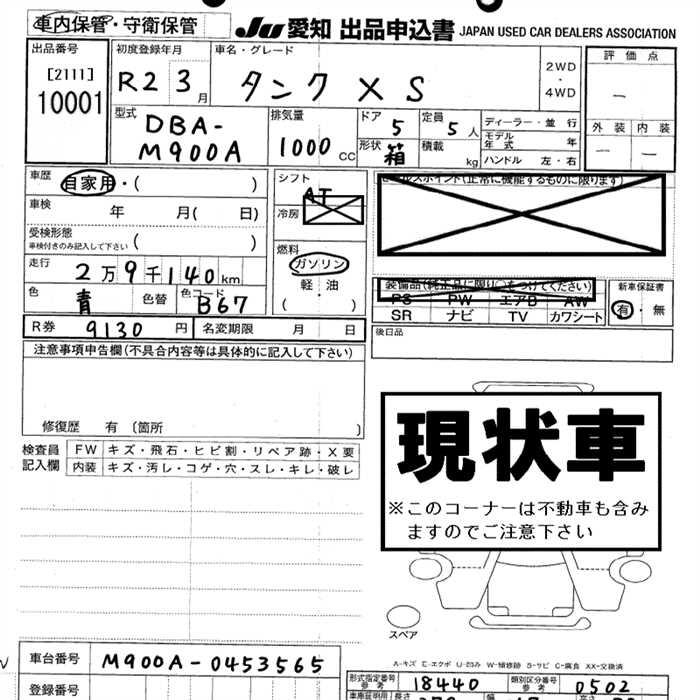 車内保管・守衛保管
JU 愛知 出品申込書 JAPAN USED CAR DEALERS ASSOCIATION
出品番号
[2111]
10001
初度登録年月
R2 3月
車名・グレード
タンク X S
2WD
・
4WD
評価点
―
外装 内装
― ―
型式
DBA-
M900A
排気量
1000 CC
ドア 5
形状 箱
定員 5人
積載 kg
ディーラー・並行
モデル年式 年
ハンドル 左・右
車歴
自家用・( )
車検
年 月( 日)
受検形態
車検付きのみ記入して下さい ( )
走行
2万9千140km
色 青
色替
色コード B67
シフト
AT
冷房
燃料
ガソリン
軽・油
( )
セールスポイント(正常に機能するものに限ります)
装備品(純正品に限り○をつけてください)
PS PW エアB AW
SR ナビ TV カワシート
新車保証書
有・無
R券 9130円
名変期限 月 日
後日品
注意事項申告欄(不具合内容等は具体的に記入して下さい)
修復歴 有 〔箇所 〕
検査員
記入欄
FW キズ・飛石・ヒビ割・リペア跡・X要
内装 キズ・汚レ・コゲ・穴・スレ・キレ・破レ
現状車
※このコーナーは不動車も含み
ますのでご注意下さい
スペア
A-キズ E-エクボ U-凹み W-補修跡 S-サビ C-腐食 XX-交換済
車台番号 M900A-0453565
登録番号
形式指定番号
参考
18440
類別区分番号
参考
0502